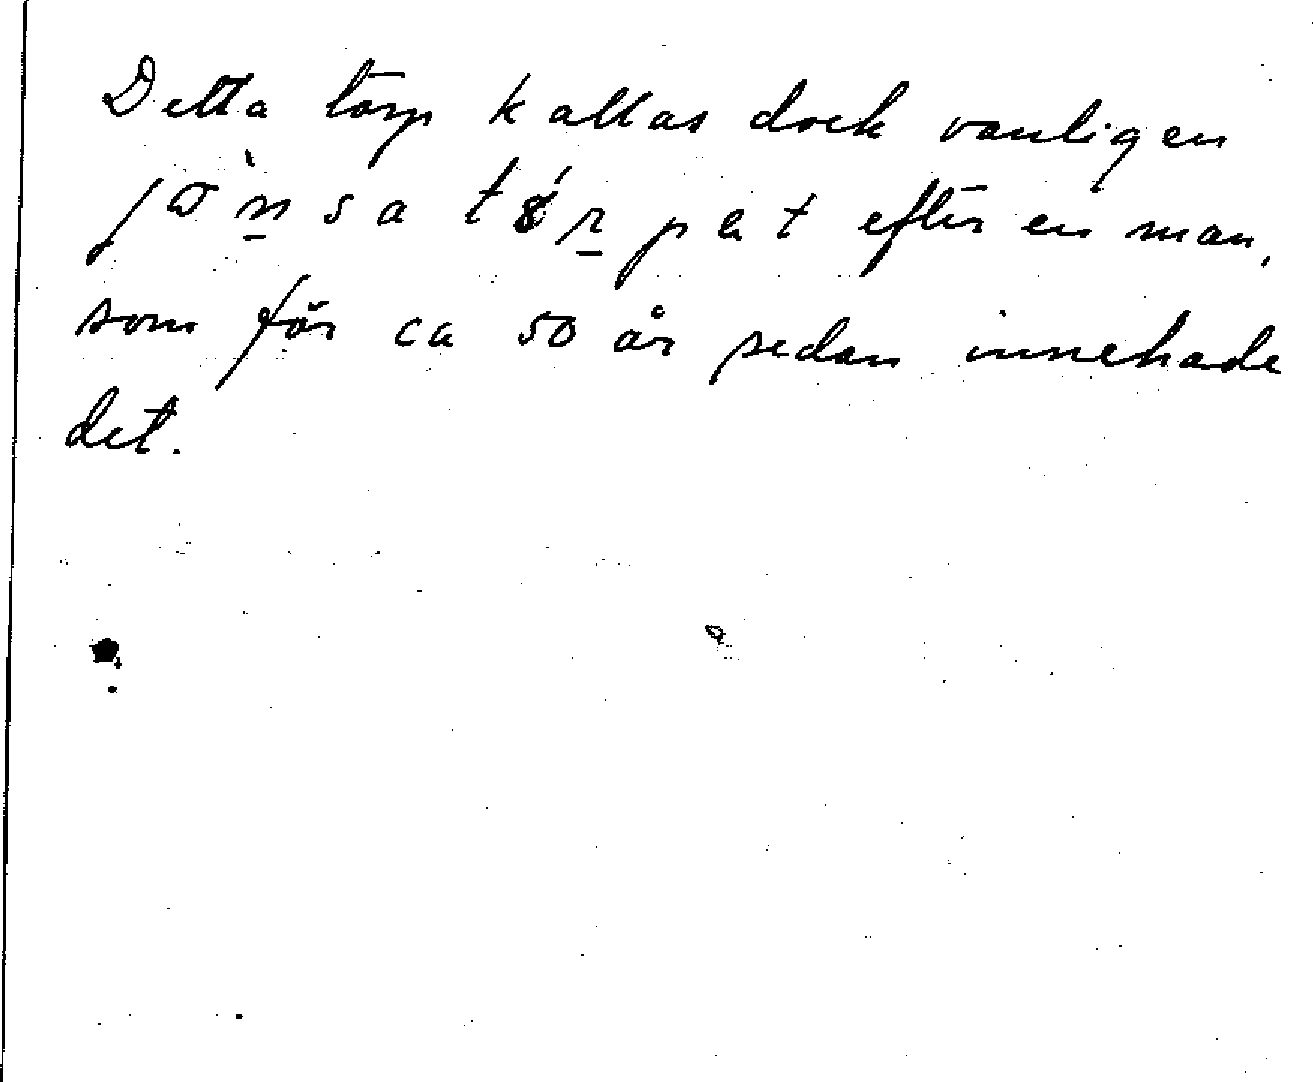 Detta torp kallas dock vanligen
efter en man,
som för ca 50 år sedan innehade
det.